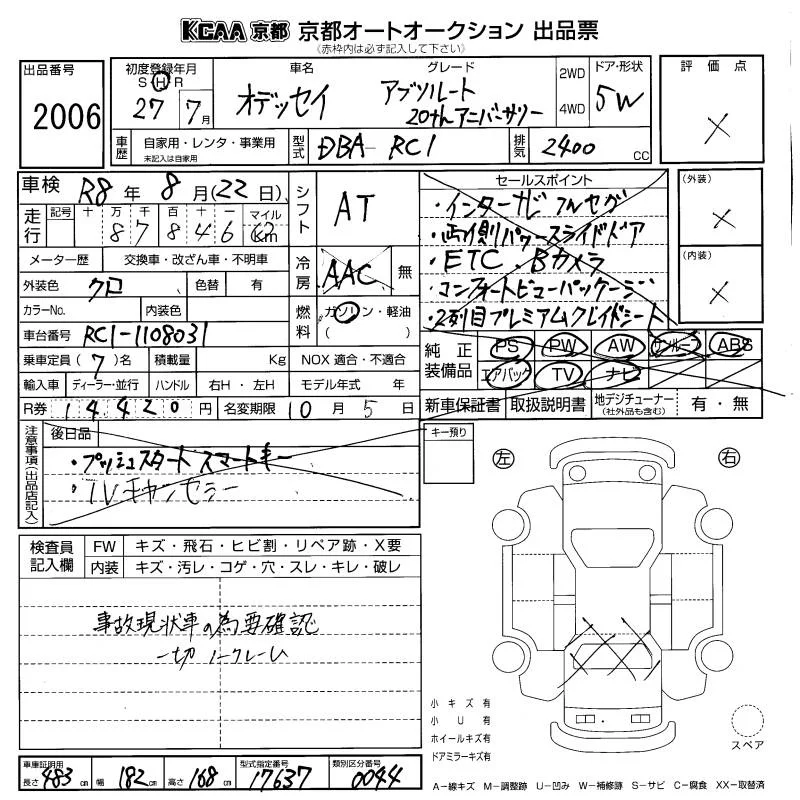 KCAA 京都 京都オートオークション 出品票
(赤枠内は必ず記入して下さい)
出品番号 2006
初度登録年月 S H R 27年 7月
車名 オデッセイ
グレード アブソルート 20thアニバーサリー
2WD 4WD
ドア・形状 5W
評価点 ×
車歴 自家用・レンタ・事業用 未記入は自家用
型式 DBA-RC1
排気 2400 CC
車検 R8年 8月(22日)
シフト AT
セールスポイント
・インターナビ フルセグ
・両側パワースライドドア
・ETC. Bカメラ
・コンフォートビューパッケージ
・2列目プレミアムクレイドルシート
(外装) ×
(内装) ×
走行 記号 十 万 千 百 十 一 マイル Km
87846
メーター歴 交換車・改ざん車・不明車
冷房 AAC 無
外装色 クロ 色替 有
カラーNo. 内装色
燃料 ガソリン・軽油 ( )
車台番号 RC1-1108031
乗車定員 (7)名 積載量 Kg NOX 適合・不適合
輸入車 ディーラー・並行 ハンドル 右H・左H モデル年式 年
R券 14420円 名変期限 10月5日
純正装備品 PS PW AW サンルーフ ABS
エアバッグ TV ナビ
新車保証書 取扱説明書 地デジチューナー (社外品も含む) 有・無
注意事項(出品店記入)
後日品
・プッシュスタート スマートキー
・TVキャンセラー
キー預り
左 右
検査員記入欄 FW キズ・飛石・ヒビ割・リペア跡・X要
内装 キズ・汚レ・コゲ・穴・スレ・キレ・破レ
事故現状車の為要確認
一切ノークレーム
小キズ有
小U有
ホイールキズ有
ドアミラーキズ有
スペア
車庫証明用 長さ 483cm 幅 182cm 高さ 168cm 型式指定番号 17637 類別区分番号 0044
A-線キズ M-調整跡 U-凹み W-補修跡 S-サビ C-腐食 XX-取替済